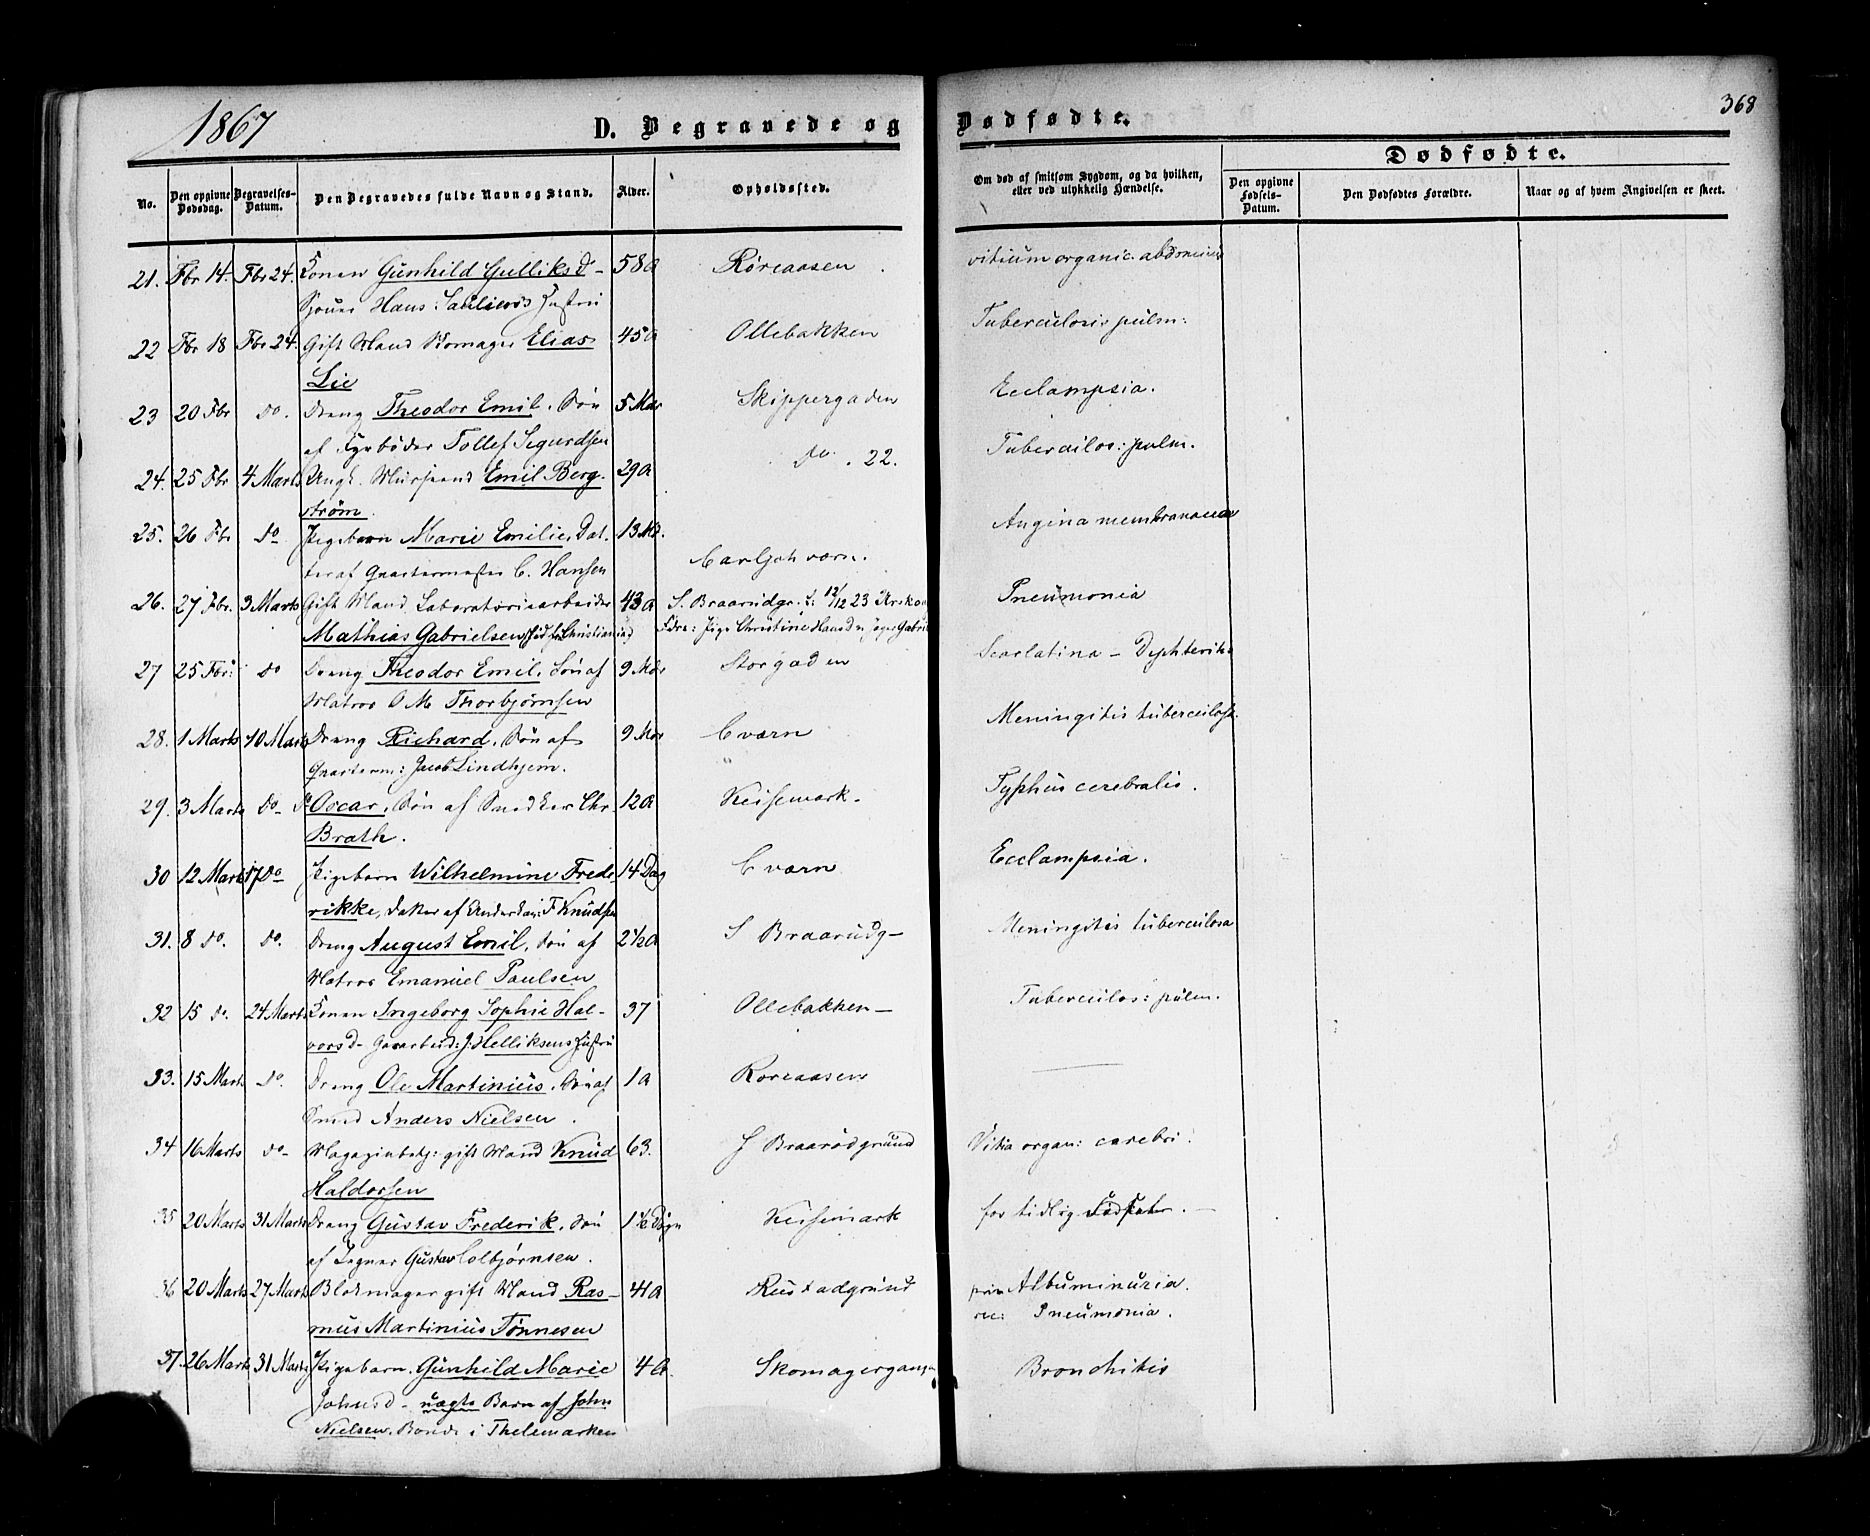 1867
D. Begravede og Dødfødte.
368
Dødfødte.
No.
Den opgivne Dødsdag.
Begravelses-Datum.
Den Begravedes fulde Navn og Stand.
Alder.
Opholdssted.
Om død af smitsom Sygdom, og da hvilken, eller ved ulykkelig Hændelse.
Den opgivne Fødsels-Datum.
Den Dødfødtes Forældre.
Naar og af hvem Angivelsen er skeet.
21. Fbr 14. Fbr 24. Konen Gunhild Gulliksd- 58 a Røreaasen vitium organic. abdominis
Hans
22 Fbr 18 Fbr 24. Gift Mand Skomager Elias 45 a Ollebakken Tuberculosis pulm:
Lie
23 20 Fbr do. Dreng Theodor Emil, Søn 5 Mdr Skippergaden Ecclampsia.
af Fyrbøder Tollef Sigurdsen
24. 25 Fbr 4 Marts Ungk. Emil Berg- 29 a do. 22. Tuberculos: pulm.
strøm.
25. 26 Fbr do Pigebarn Marie Emilie, Dat- 13 Md. Angina membranacea
ter af Quartermester C. Hansen Carljoh værn.
26. 27 Fbr. 3 Marts Gift Mand Laboratoriearbeider 43 a S. Braarudgr. f: 12/12 23 Pneumonia
Mathias Gabrielsen, Christiania Fdre: Pige Christine Hansd
27 25 Fbr: do Dreng Theodor Emil, Søn af 9 Mdr Storgaden Scarlatina -
Matros O M Thorbjørnsen
28. 1 Marts 10 Marts Dreng Richard, Søn af 9 Mdr C værn Meningitis tuberculosa
Quarterm: Jacob Lindhjem.
29. 3 Marts do- Oscar, Søn af Snedker Chr. 12 a Keisemark. Typhus cerebralis.
Brath.
30 12 Marts 17 do Pigebarn Wilhelmine Frede- 14 Dag C værn Ecclampsia.
rikke, Datter af F Knudsen
31. 8 do. do. Dreng August Emil, Søn af 2 1/2 a S Braarudg- Meningitis tuberculosa
Matros Emanuel Paulsen
32 15 do. 24 Marts Konen Ingeborg Sophie Hal- 37 Ollebakken- Tuberculos: pulm.
vorsd- J. Helliksens Hustru
33. 15 Marts do. Dreng Ole Martinius, Søn af 1 a Røreaasen
Smed Anders Nielsen.
34 16 Marts do- gift Mand Knud 63. S Braarødgrund Vitia organ: cerebri.
Haldorsen
35 20 Marts 31 Marts Dreng Gustav Frederik, Søn 1 1/2 Døgn Keisemark for tidlig Født.
af Gustav Colbjørnsen.
36 20 Marts 27 Marts Blokmager gift Mand Ras- 41 a Rustadgrund Albuminuria.
mus Martinius Tønnesen Pneumonia.
37. 26 Marts 31 Marts Pigebarn, Gunhild Marie 4 a. Skomagergangen Bronchitis
Johnsd- uægte Barn af John
Nielsen, Bonde i Thelemarken